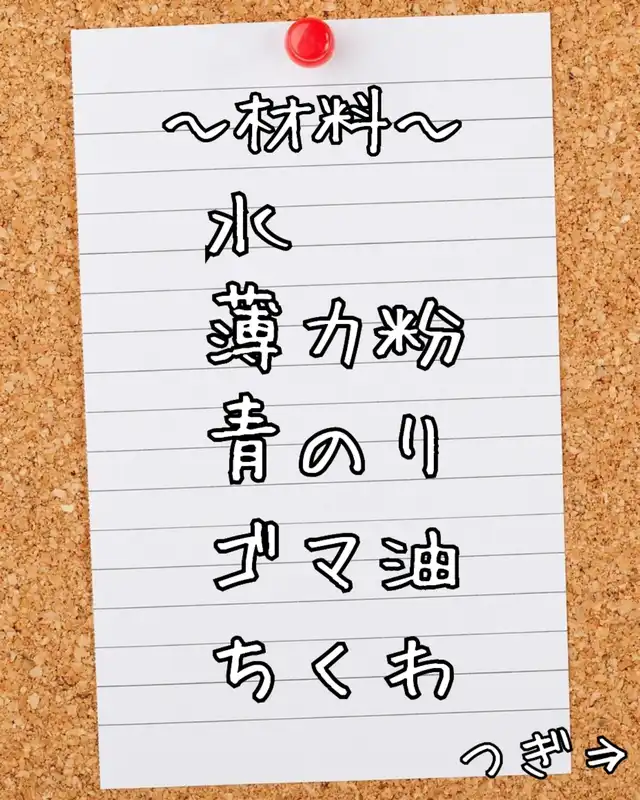 ～材料～
水
薄力粉
青のり
ゴマ油
ちくわ
つぎ→